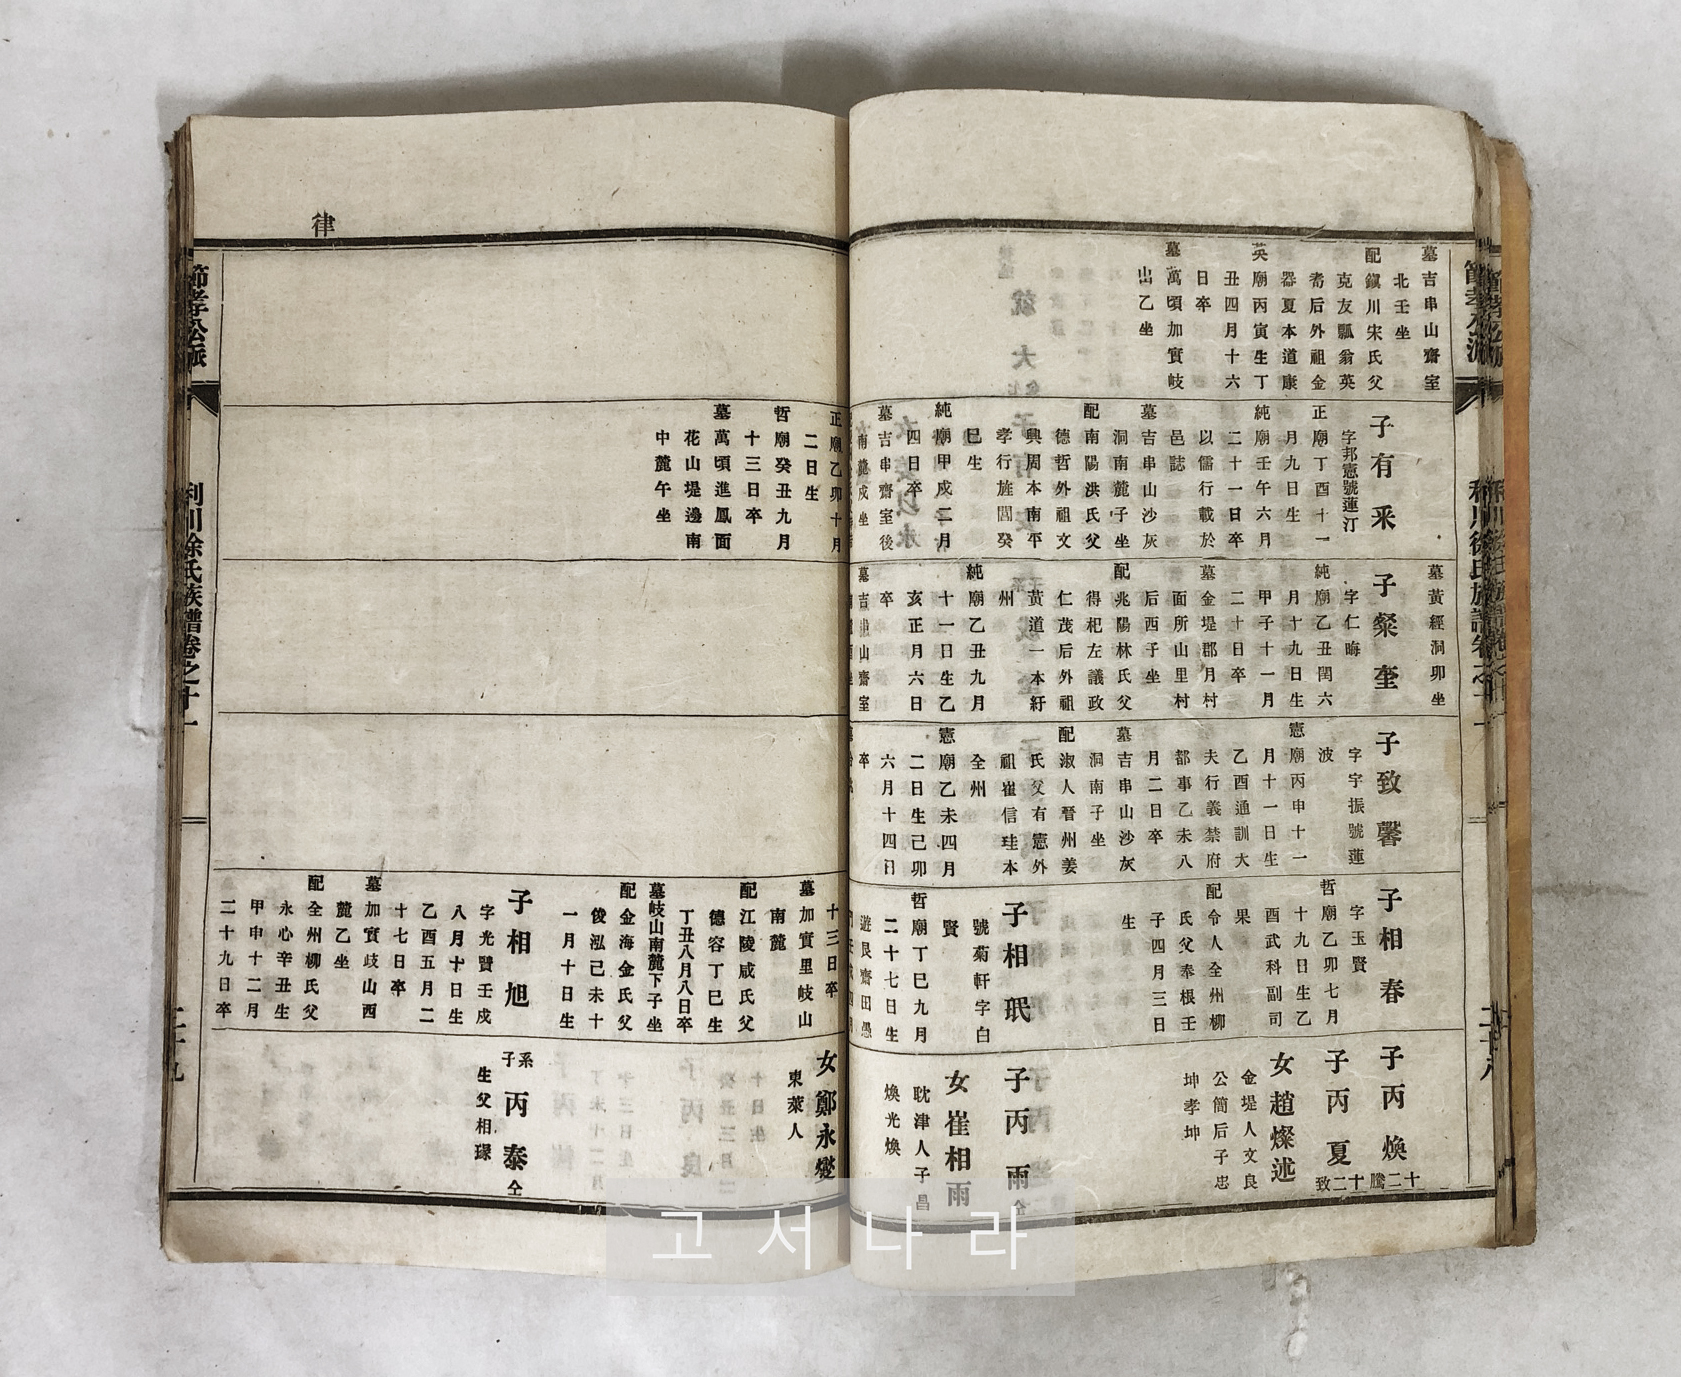 墓吉串山齋室
北壬坐
配鎭川宋氏父
克友瓢翁英
耇后外祖金
器夏本道康
英廟丙寅生丁
丑四月十六
日卒
墓萬頃加實岐
出乙坐
子有釆
字邦憲號蓮汀
正廟丁酉十一
月九日生
純廟壬午六月
二十一日卒
以儒行載於
邑誌
墓吉串山沙灰
洞南麓子坐
配南陽洪氏父
德哲外祖文
興周本南平
孝行旌閭癸
巳生
純廟甲戌二月
四日卒
墓吉串齋室後
南麓戌坐
墓黃經洞卯坐
子粲奎
字仁晦
純廟乙丑閏六
月十九日生
甲子十一月
二十日卒
墓金堤郡月村
面所山里村
后酉子坐
配兆陽林氏父
得杞左議政
仁茂后外祖
黃道一本紆
州
純廟乙丑九月
十一日生乙
亥正月六日
卒
墓吉串山齋室
子致馨
字宇振號蓮
波
憲廟丙申十一
月十一日生
乙酉通訓大
夫行義禁府
都事乙未八
月二日卒
墓吉串山沙灰
洞南子坐
配淑人晉州姜
氏父有憲外
祖崔信珪本
全州
憲廟乙未四月
二日生己卯
六月十四日
卒
子相春
字玉賢
哲廟乙卯七月
十九日生乙
酉武科副司
果
配令人全州柳
氏父奉根壬
子四月三日
生
子相珉
號菊軒字白
賢
哲廟丁巳九月
二十七日生
遊艮齋田愚
子丙煥
十二騰
子丙夏
十二致
女趙燦述
金堤人文良
公簡后子忠
坤孝坤
子丙雨
仝
女崔相雨
耽津人子昌
煥光煥
利川徐氏族譜卷之十一
二十八
律
正廟乙卯十月
二日生
哲廟癸丑九月
十三日卒
墓萬頃進鳳面
花山堤邊南
中麓午坐
十三日卒
墓加實里岐山
南麓
配江陵咸氏父
德容丁巳生
丁丑八月八日卒
墓岐山南麓下子坐
配金海金氏父
俊泓己未十
一月十日生
子相旭
字光賢壬戌
八月十日生
乙酉五月二
十七日卒
墓加實岐山西
麓乙坐
配全州柳氏父
永心辛丑生
甲申十二月
二十九日卒
女鄭永燮
東萊人
系子丙泰
仝
生父相琭
節孝公派
利川徐氏族譜卷之十一
二十九
고서나라